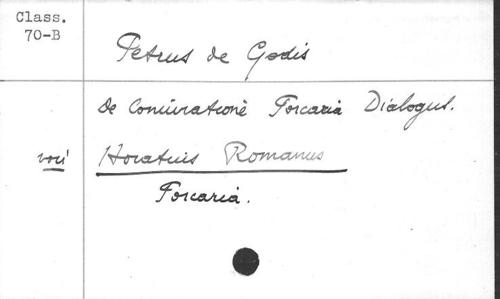 Class.
70-B
Petrus de Godis
De Coniuratione Porcaria Dialogus.
Horatius Romanus
Porcaria.